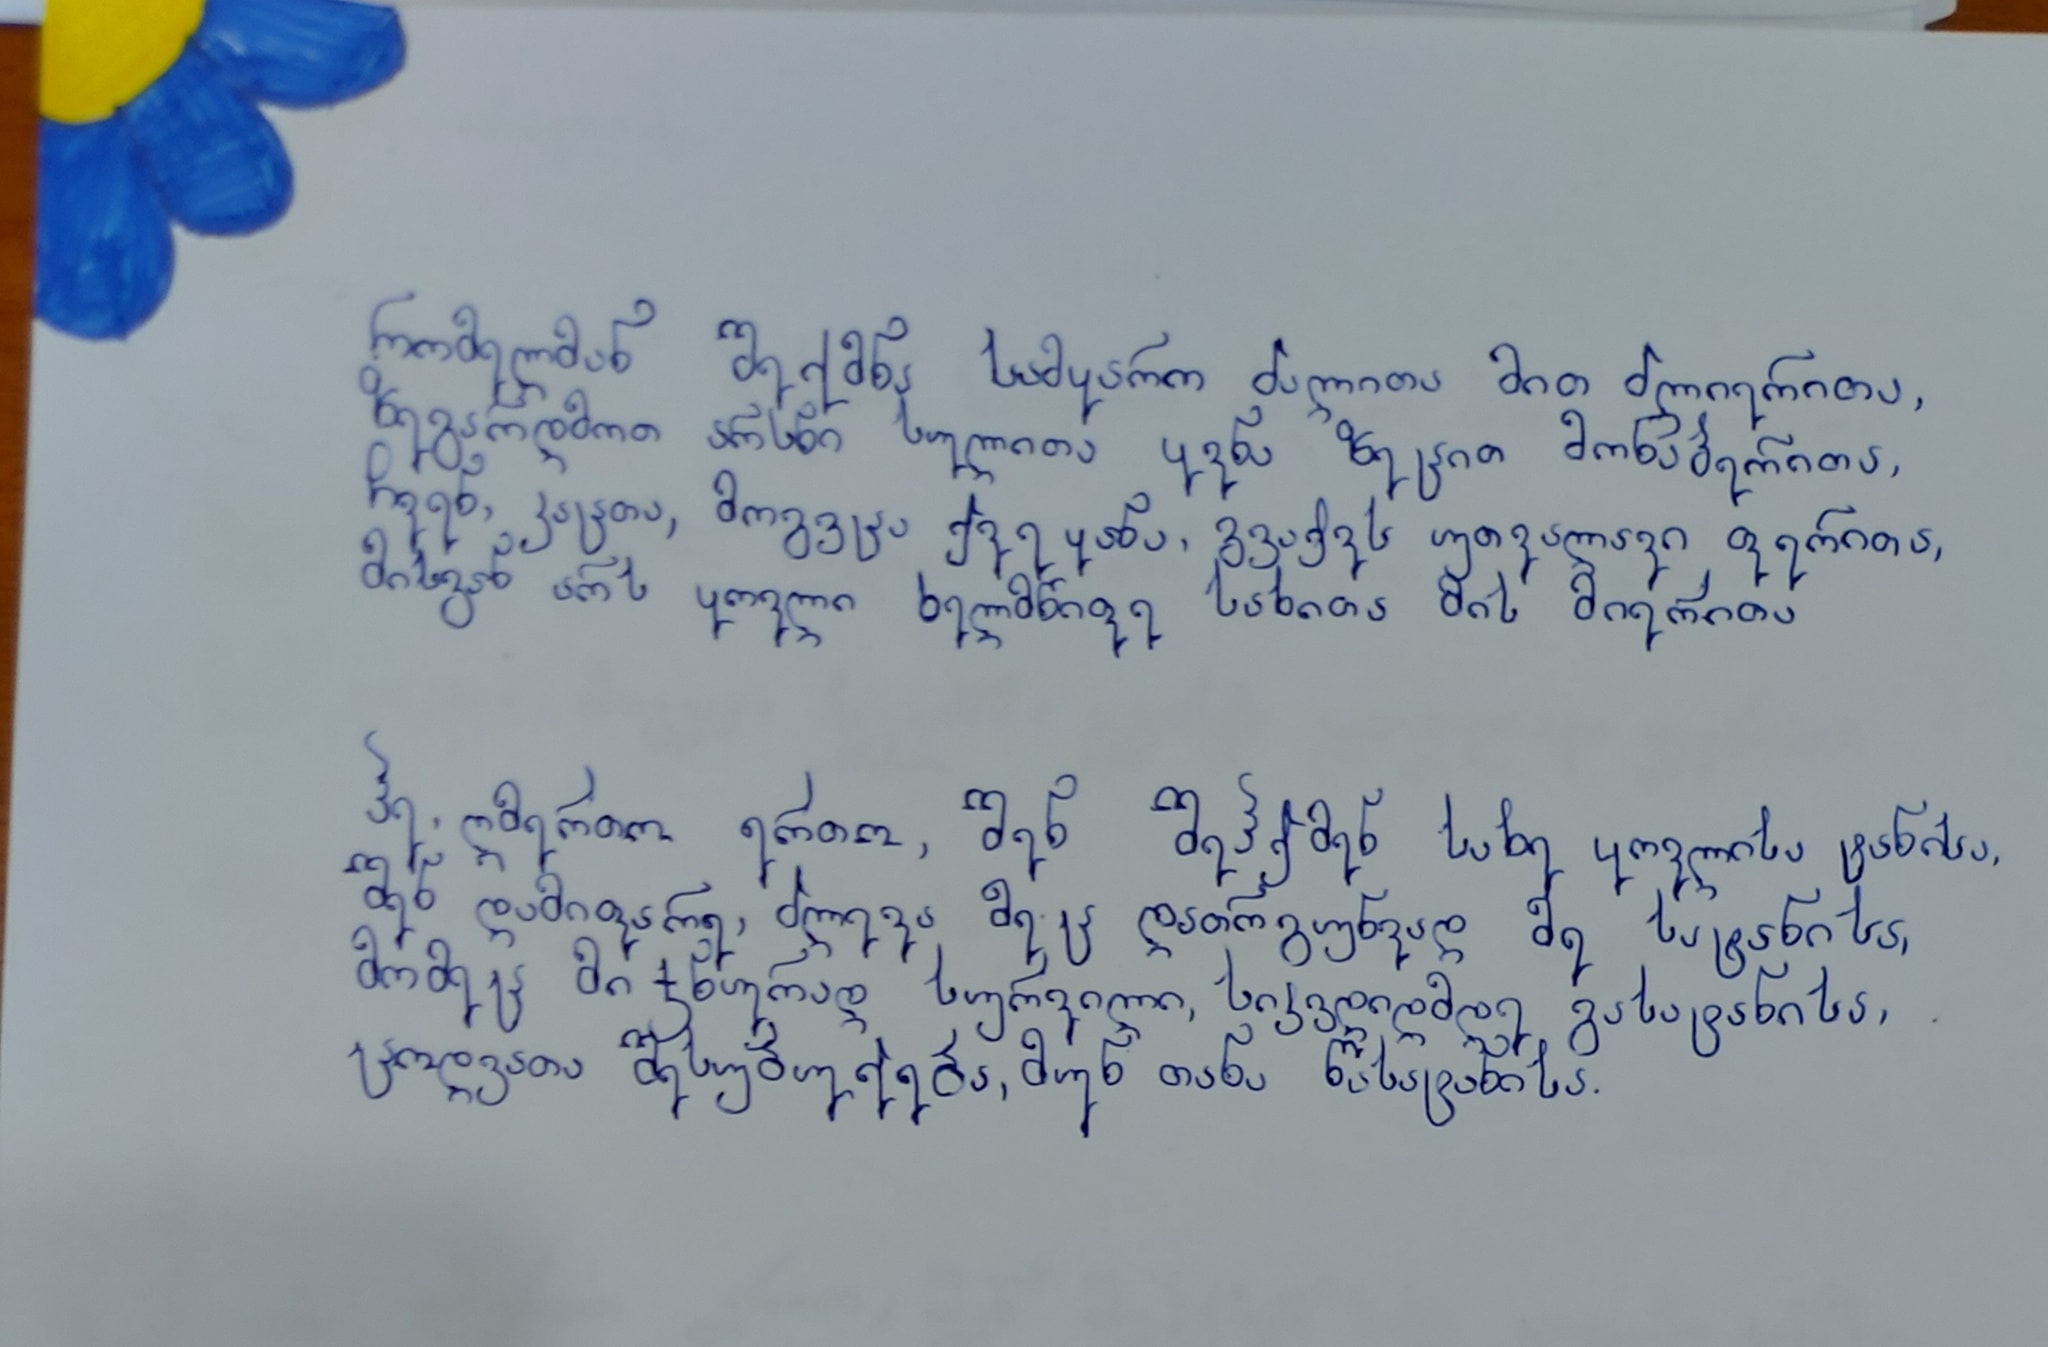 რომელმან შექმნა სამყარო ძალითა მით ძლიერითა,
ზეგარდმო არსნი სულითა ყვნა ზეცით მონაბერითა,
ჩვენ, კაცთა, მოგვცა ქვეყანა, გვაქვს უთვალავი ფერითა,
მისგან არს ყოველი ხელმწიფე სახითა მის მიერითა
ჰე, ღმერთო ერთო, შენ შეჰქმენ სახე ყოვლისა ტანისა,
შენ დამიფარე, ძლევა მეც დათრგუნვად მე სატანისა,
მომეც მიჯნურთად სურვილი, სიკვდიდმდე გასატანისა,
ცოდვათა შესუბუქება, მუნ თანა წასატანისა.